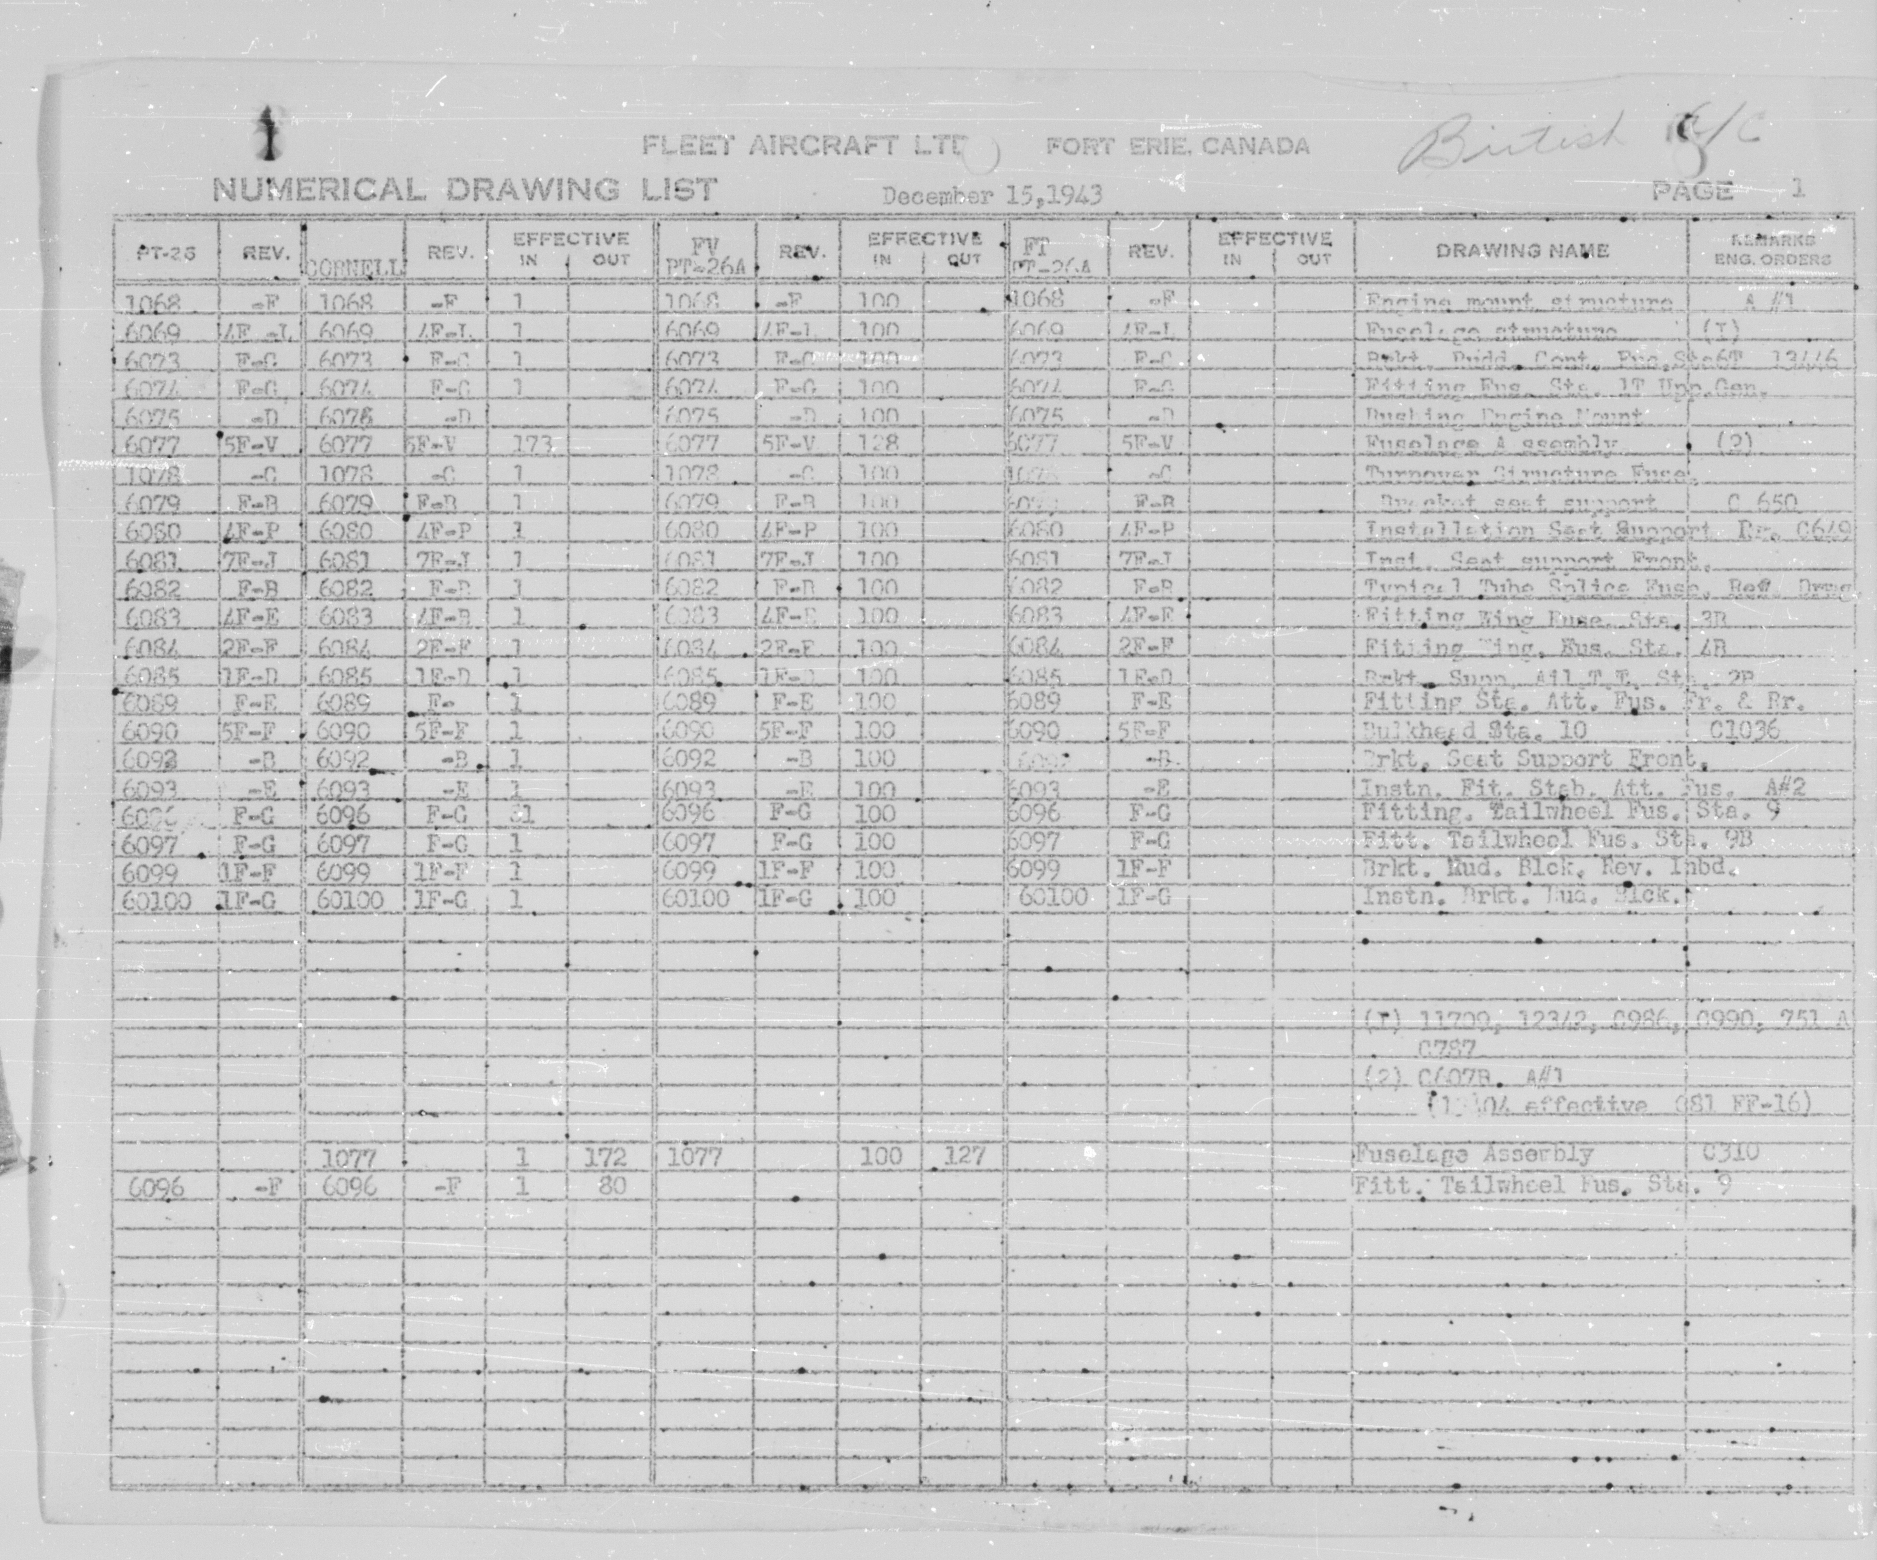 FLEET AIRCRAFT LTD FORT ERIE, CANADA British A/C
NUMERICAL DRAWING LIST December 15,1943 PAGE 1
PT-26 REV. CORNELL REV. EFFECTIVE IN OUT FV PT-26A REV. EFFECTIVE IN OUT FT PT-26A REV. EFFECTIVE IN OUT DRAWING NAME REMARKS ENG. ORDERS
1068 -F 1068 -F 1 1068 -F 100 1068 -F Engine mount structure A #1
6069 4F-L 6069 4F-L 1 6069 4F-L 100 6069 4F-L Fuselage structure (I)
6073 F-C 6073 F-C 1 6073 F-C 100 6073 F-C Brkt. Rudd. Cont. Fus.Sta6T 13446
6074 F-G 6074 F-G 1 6074 F-G 100 6074 F-G Fitting Fus. Sta. 1T Upp.Gen.
6075 -D 6075 -D 6075 -D 100 6075 -D Bushing Engine Mount
6077 5F-V 6077 5F-V 173 6077 5F-V 128 6077 5F-V Fuselage A ssembly (2)
1078 -C 1078 -C 1 1078 -C 100 1078 -C Turnover Structure Fuse.
6079 F-B 6079 F-B 1 6079 F-B 100 6079 F-B Bracket seat support C 650
6080 4F-P 6080 4F-P 1 6080 4F-P 100 6080 4F-P Installation Seat Support Rr. C649
6081 7F-J 6081 7F-J 1 6081 7F-J 100 6081 7F-J Inst. Seat support Front.
6082 F-B 6082 F-B 1 6082 F-B 100 6082 F-B Typical Tube Splice Fuse. Ref. Drwg.
6083 4F-E 6083 4F-E 1 6083 4F-E 100 6083 4F-E Fitting Wing Fuse. Sta. 3B
6084 2F-F 6084 2F-F 1 6084 2F-F 100 6084 2F-F Fitting Wing. Fus. Sta. 4B
6085 1F-D 6085 1F-D 1 6085 1F-D 100 6085 1F-D Brkt. Supp. Ail.T.T. Sta. 2B
6089 F-E 6089 F- 1 6089 F-E 100 6089 F-E Fitting Sta. Att. Fus. Fr. & Rr.
6090 5F-F 6090 5F-F 1 6090 5F-F 100 6090 5F-F Bulkhead Sta. 10 C1036
6092 -B 6092 -B 1 6092 -B 100 6092 -B Brkt. Seat Support Front.
6093 -E 6093 -E 1 6093 -E 100 6093 -E Instn. Fit. Stab. Att. Fus. A#2
6096 F-G 6096 F-G 81 6096 F-G 100 6096 F-G Fitting. Tailwheel Fus. Sta. 9
6097 F-G 6097 F-G 1 6097 F-G 100 6097 F-G Fitt. Tailwheel Fus. Sta. 9B
6099 1F-F 6099 1F-F 1 6099 1F-F 100 6099 1F-F Brkt. Mud. Blck. Rev. Inbd.
60100 1F-G 60100 1F-G 1 60100 1F-G 100 60100 1F-G Instn. Brkt. Mud. Blck.
(I) 11709, 12342, C986, C990, 751 A
C787
(2) C607B. A#1
effective 081 FF-16)
1077 1 172 1077 100 127 Fuselage Assembly C310
6096 -F 6096 -F 1 80 Fitt. Tailwheel Fus. Sta. 9